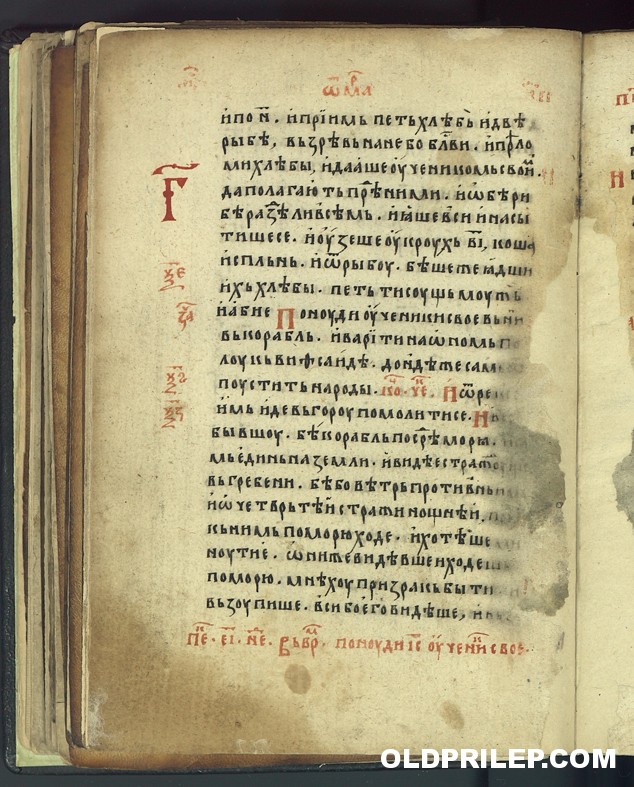 ѿ мⷬ҇ка
и по н҃. и приимь петь хлѣбь и двѣ
рыбѣ, вьзрѣвь на небо бл҃ви. и прѣло
ми хлѣбы, и даꙗше оученикомь свои.
Г҃
да полагають прѣⷣ ними. и ѡбѣ ри
бѣ раздѣли всѣмь. и ꙗше вси и насы
тише се. и оузеше оукроухь в҃і, коша
испльнь. и ѿ рыбоу. бѣше же ꙗдши
ихь хлѣбы. петь тисоушь моужь
и абиѥ Поноуди оученики своѥ вьнити
вь корабль. и варіти на ѡномь
лоу кь виѳсаидѣ. дондѣже сам
поустить народы. коⷰ҇. чеⷮ. И ѿре
имь иде вь гороу помолити се. И
бывшоу. бѣ корабль посрⷣѣ морꙗ.
мь ѥдинь на земли. и видѣ ѥ стражⷣ
вь гребени. бѣ бо вѣтрь противнь имь
и ѡ четврьтѣи стражи нощнѣи.
кь нимь по морю ходе. и хотѣше
ноути ѥ. ѡни же видѣвше и ходеща
по морю. мнѣхоу призракь быти
вьзоупише. вси бо ѥго видѣше, и
пеⷦ҇. е҃і. неⷣ. вь врⷨ҇. поноуди іс҃ оученики своѥ.
OLDPRILEP.COM